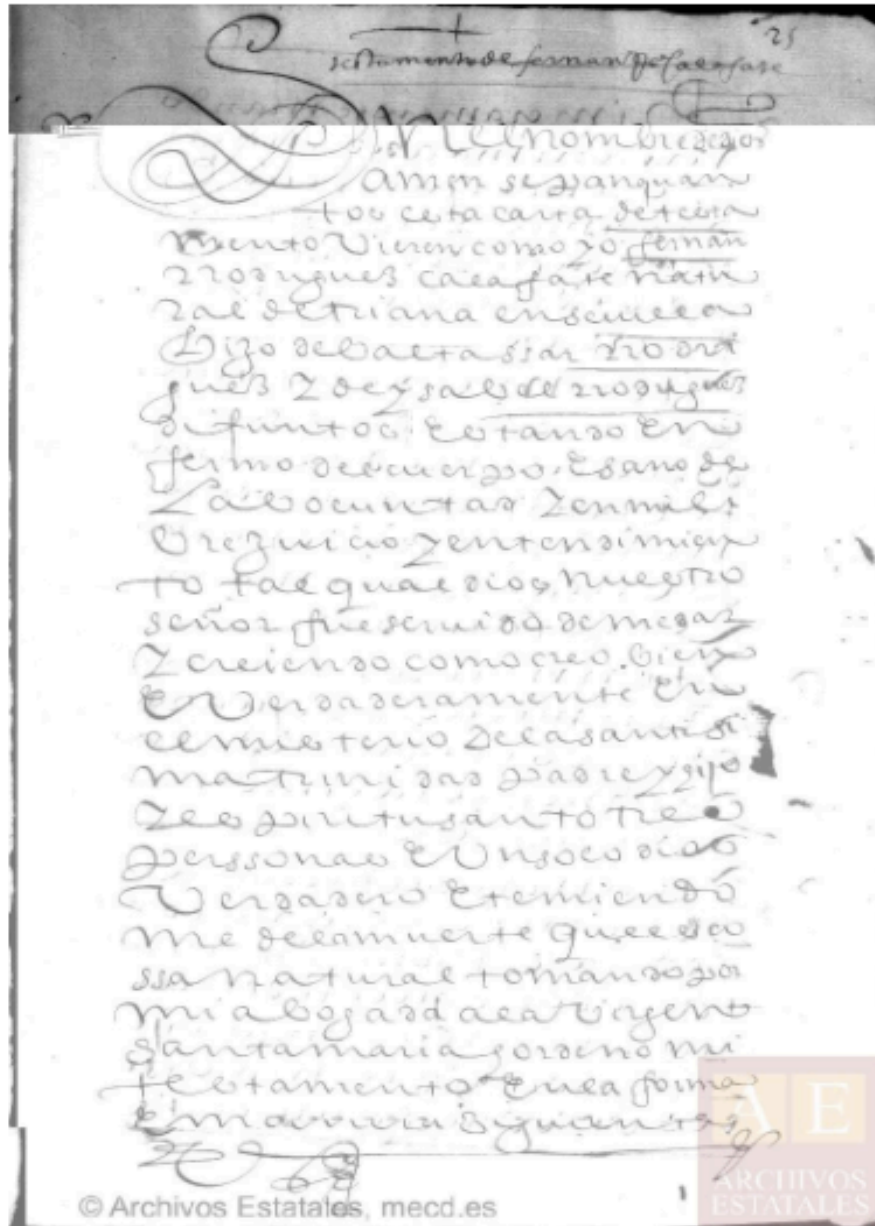 25
testamento de fernan
En el nombre de dios
amen sepan quan
tos esta carta de testa
mento vieren como yo fernan
rrodriguez calafate natu
ral de triana en seuilla
hijo de baltassar rrodri
guez y de ysabel rrodriguez
difuntos estando en
fermo del cuerpo e sano de
la boluntad y en mi li
bre juicio y entendimien
to tal qual dios nuestro
señor fue seruido de me dar
y creiendo como creo bien
e verdaderamente en
el misterio de la santissi
ma trinidad padre y hijo
y espiritu santo tres
perssonas e un solo dios
verdadero e temiendo
me de la muerte que es co
ssa natural tomando por
mi abogada a la virgen
santa maria hordeno mi
testamento en la forma
e manera siguiente
© Archivos Estatales, mecd.es
AE
ARCHIVOS
ESTATALES